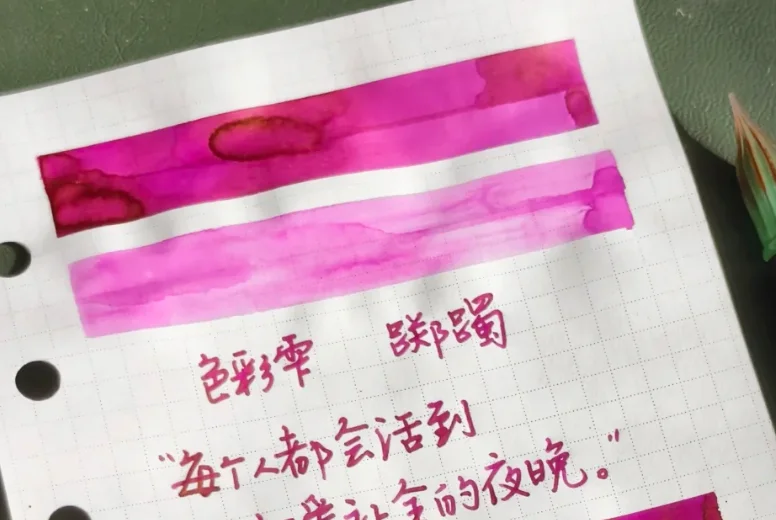 色彩雫 踯躅
“每个人都会活到
的夜晚。”